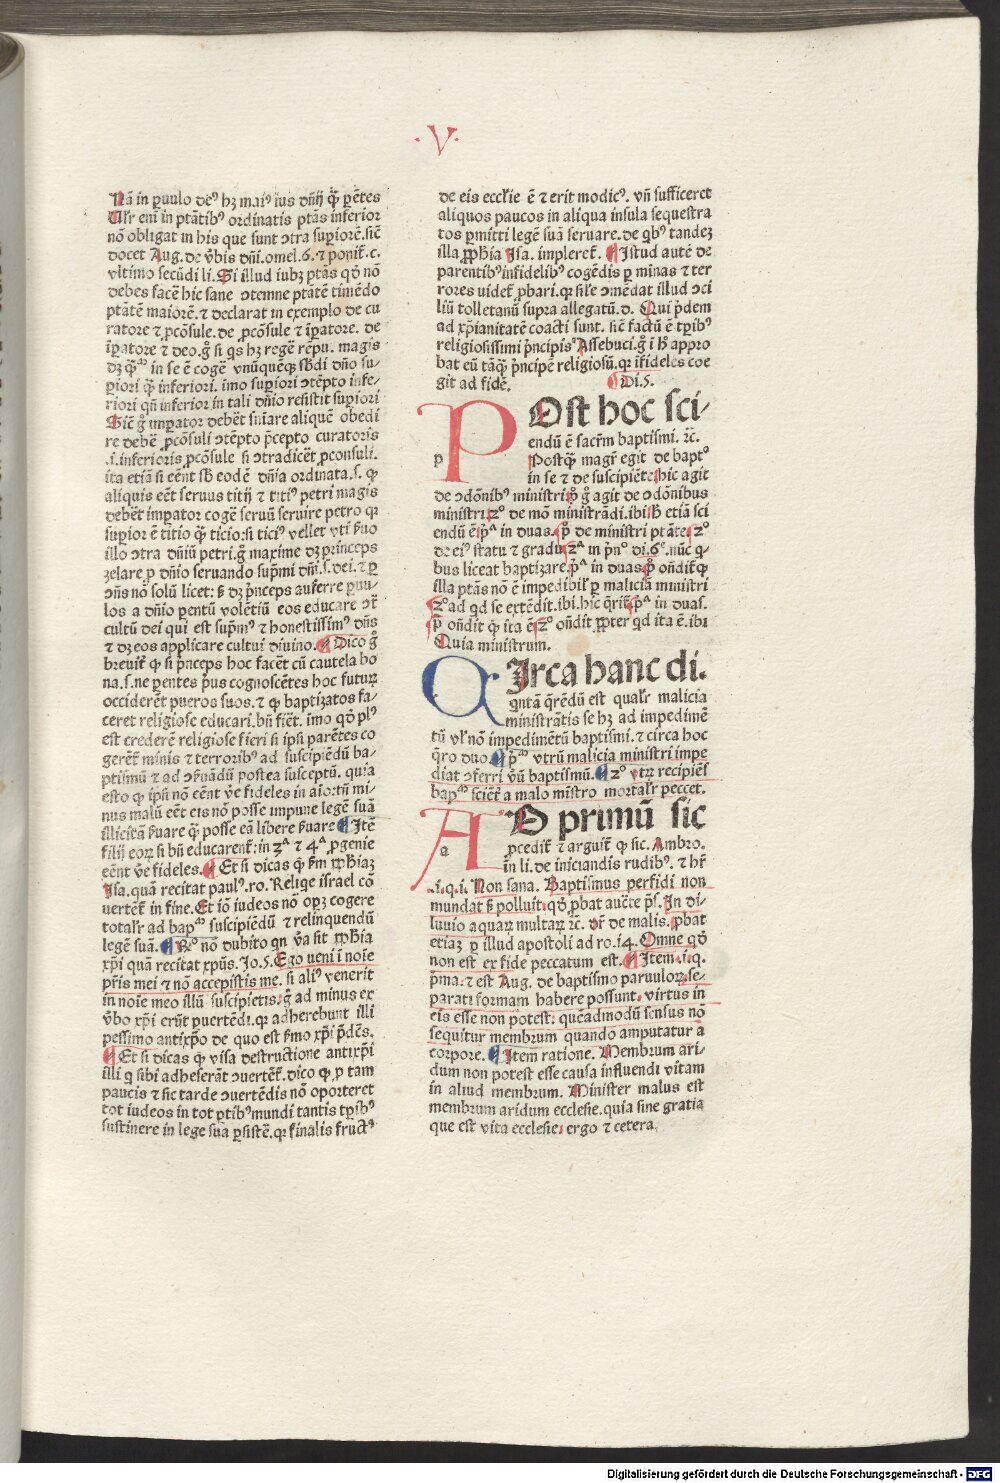 ·V·
Nã in ꝑuulo deꝰ hꝫ maiꝰ ius dñij q̃ꝫ pẽtes
Uĺr eni in ptãtibꝰ ordinatis ptãs inferior
nõ obligat in his que sunt ↄtra supiorẽ. sic̃
docet Aug. de v̾bis dñi. omel. 6. ⁊ ponit̃. c.
vltimo secũdi li. Si illud iubꝫ ptãs qd̾ nõ
debes facẽ hic sane ↄtemne ptãtẽ timẽdo
ptãtẽ maiorẽ. ⁊ declarat in exemplo de cu
ratore ⁊ ꝓcõsule. de ꝓcõsule ⁊ iꝑatore. de
iꝑatore ⁊ deo. g̊ si q̃s hꝫ regẽ reipu. magis
in se ẽ cogẽ vnũquẽqꝫ sb̾di dño su-
ꝑiori q̃ꝫ inferiori. imo supiori ↄtẽpto infe-
riori qñ inferior in tali dñio resistit supiori
Sic̃ g̊ imꝑator debẽt sniare aliquẽ obedi
re debẽ ꝓcõsuli ↄtẽpto p̃cepto curatoris
.i. inferioris ꝓcõsule si ↄtradicẽt ꝓconsuli.
ita etiã si eẽnt sb̾ eodẽ dñia ordinata. s. ꝙ
aliquis eẽt seruus titij ⁊ titiꝰ petri magis
debẽt imꝑator cogẽ seruũ seruire petro qꝛ
supior ẽ titio q̃ꝫ ticio: si ticiꝰ vellet vti s̾uo
illo ↄtra dñiũ petri. g̊ maxime dꝫ princeps
zelare ꝓ dñio seruando sup̃mi dñi. s. dei. ⁊ ꝑ
ↄñs nõ solũ licet: sꝫ dꝫ p̃nceps auferre ꝑuu-
los a dñio pentũ volẽtiũ eos educare ↄt̃
cultũ dei qui est sup̃mꝰ ⁊ honestissimꝰ dñs
⁊ dꝫ eos applicare cultui diuino. Dico g̊
breuit̃ ꝙ si p̃nceps hoc facẽt cũ cautela bo
na. s. ne pentes p̃us cognoscẽtes hoc futurꝫ
occiderẽt pueros suos. ⁊ ꝙ baptizatos fa-
ceret religiose educari. bñ fiẽt. imo qd̾ plꝰ
est crederẽ religiose fieri si ipsi parẽtes co
gerẽt̃ minis ⁊ terroribꝰ ad suscipiẽdũ ba-
ptismũ ⁊ ad ↄs̾uãdũ postea susceptũ. quia
esto ꝙ ipsi nõ eẽnt ve̾ fideles in aio: tñ mi-
nus malũ eẽt eis nõ posse impune legẽ suã
illicitã s̾uare q̃ꝫ posse eã libere s̾uare Itẽ
filij eoꝝ si bñ educarent̃: in 3ᵃ ⁊ 4ᵃ ꝓgenie
eẽnt ve̾ fideles. Et si dicas q̃ꝫ sm̃ ꝓph̾iaꝫ
Isa. quã recitat paulꝰ. ro. Reliqe israel cõ
uertẽt̃ in fine. Et iõ iudeos nõ opꝫ cogere
totalr̃ ad bapᵐᵒ suscipiẽdũ ⁊ relinquendũ
legẽ suã. Rᵒ nõ dubito qn v̾a sit ꝓph̾ia
xp̃i quã recitat xp̃us. Jo. 5. Ego veni ĩ noĩe
pr̃is mei ⁊ nõ accepistis me. si aliꝰ venerit
in noĩe meo illũ suscipietis. g̊ ad minus ex
v̾bo xp̃i erũt puertẽdi. qꝛ adherebunt illi
pessimo antixp̃o de quo est s̾mo xp̃i p̃dẽs.
Et si dicas ꝙ visa destructione antixp̃i
illi q̃ sibi adheserãt ↄuertẽt̃. dico ꝙ ꝓ tam
paucis ⁊ sic tarde ↄuertẽdis nõ oporteret
tot iudeos in tot ptibꝰ mundi tantis tp̃ibꝰ
sustinere in lege sua ꝑsistẽ. qꝛ finalis fructꝰ
de eis ecc̃lie ẽ ⁊ erit modicꝰ. vñ sufficeret
aliquos paucos in aliqua insula sequestra
tos ꝑmitti legẽ suã seruare. de qbꝰ tandeꝫ
illa ꝓph̾ia Isa. impleret̃. Istud autẽ de
parentibꝰ infidelibꝰ cogẽdis ꝑ minas ⁊ ter
rores uidet̃ ꝓbari. qꝛ sil̾e ↄmẽdat illud ↄci
liũ tolletanũ supra allegatũ. d. Qui p̃dem
ad xp̃ianitatẽ coacti sunt. sic̃ factũ ẽ tp̃ibꝰ
religiosissimi p̃ncipis Assebuci. g̊ i hꝰ appro
bat eũ tãqꝫ p̃ncipẽ religiosũ. qꝛ ĩfideles coe
git ad fidẽ. Di. 5.
POst hoc sci-
p
endũ ẽ sacr̃m baptismi. ⁊c̃.
Postq̃ꝫ magr̃ egit de baptᵒ
in se ⁊ de suscipiẽte: hic agit
de ↄdõnibꝰ ministri. g̊ agit de ↄdõnibus
ministri. 2ᵒ de mõ ministrãdi. ibi. sꝫ etiã sci
endũ ẽ. pᵃ in duas. pᵒ de ministri ptãte. 2ᵒ
de eiꝰ statu ⁊ gradu. 2ᵃ in pñᵒ di. 6ᵉ. nũc q̃
bus liceat baptizare. pᵃ in duas. pᵒ oñdit ꝙ
illa ptãs nõ ẽ impedibil̾ ꝑ maliciã ministri
2ᵒ ad qd se extẽdit. ibi. hic q̃rit̃. pᵃ in duas.
pᵒ oñdit ꝙ ita ẽ. 2ᵒ oñdit ꝓpter qd ita ẽ. ibi
Quia ministrum.
CIrca hanc di.
gntã q̃rẽdũ est qualr̃ malicia
ministrãtis se hꝫ ad impedimẽ
tũ vl̾ nõ impedimẽtũ baptismi. ⁊ circa hoc
q̃ro duo. pᵐᵒ vtrũ malicia ministri impe
diat ↄferri v̾ũ baptismũ. 2ᵒ vtꝝ recipiẽs
bapᵐᵒ sciẽt̃ a malo mĩstro mortalr̃ peccet.
AD primũ sic
a
ꝓcedit̃ ⁊ arguit̃ ꝙ sic. Ambro.
in li. de iniciandis rudibꝰ. ⁊ hr̃
.i. q. i. Non sana. Baptismus perfidi non
mundat sꝫ polluit. qd̾ ꝓbat aucte p̃s. In di-
luuio aquaꝝ multaꝝ ⁊c̃. dr̃ de malis. ꝓbat
etiaꝫ ꝑ illud apostoli ad ro. 14. Omne qd̾
non est ex fide peccatum est. Item. i. q.
pᵃma. ⁊ est Aug. de baptismo paruuloꝝ. se-
parati formam habere possunt. virtus in
eis esse non potest: quẽadmodũ sensus nõ
sequitur membrum quando amputatur a
corpore. Item ratione. Membrum ari-
dum non potest esse causa influendi vitam
in aliud membrum. Minister malus est
membrum aridum ecclesie. quia sine gratia
que est vita ecclesie: ergo ⁊ cetera.
Digitalisierung gefördert durch die Deutsche Forschungsgemeinschaft - DFG